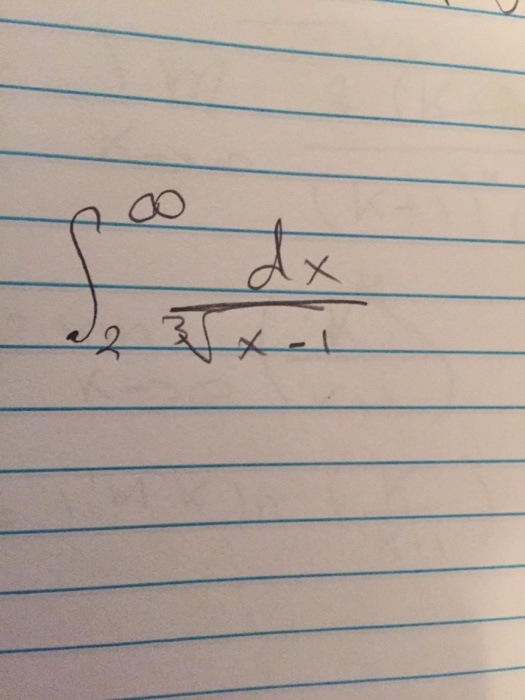 ∫₂^∞ dx / ∛(x-1)